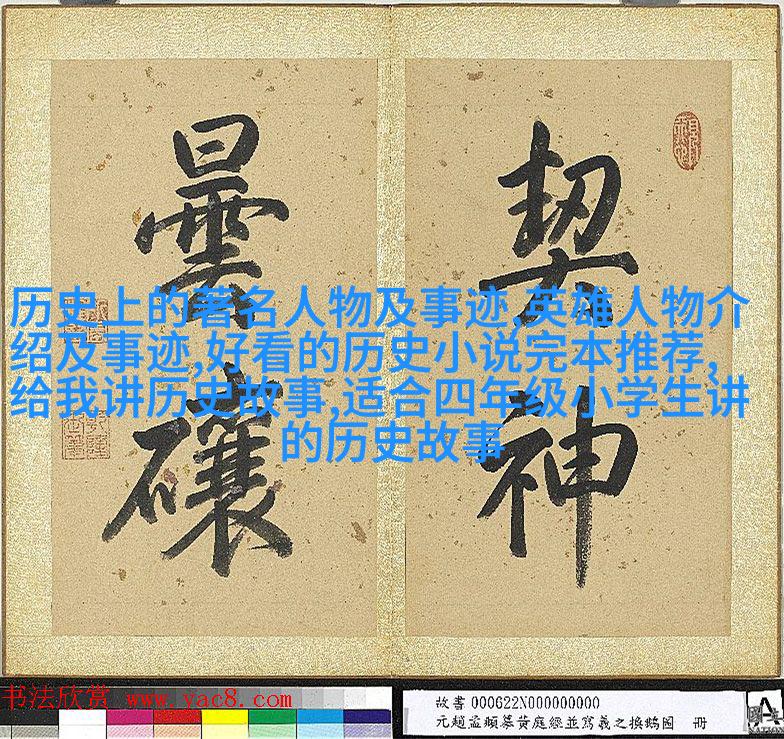 契神
曇
历史上的著名人物及事迹,英雄人物介
绍及事迹,好看的历史小说完本推荐,
给我讲历史故事,适合四年级小学生讲
的历史故事
书法欣赏 www.yac8.com
故書 000622N000000000
元趙孟頫摹黃庭經並寫羲之換鵝圖 冊